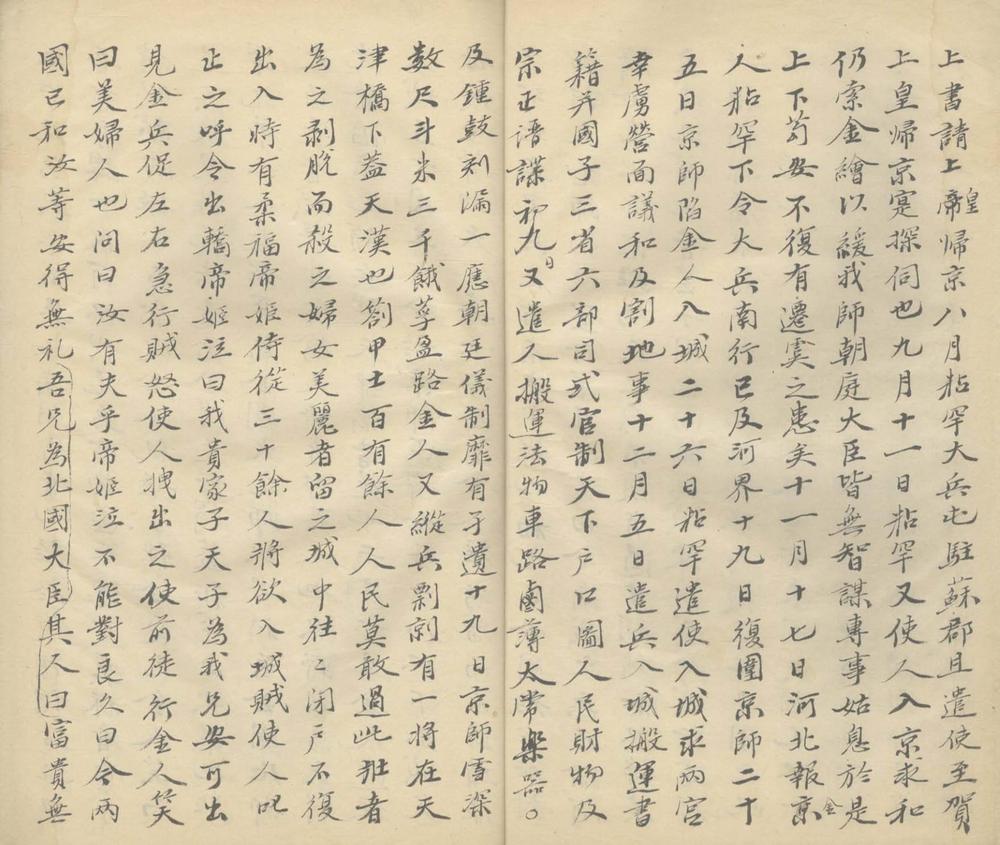 上書請上皇帝歸京八月粘罕大兵屯駐蘇郡且遣使至賀
上皇歸京寔探伺也九月十一日粘罕又使人入京求和
仍索金繒以緩我師朝庭大臣皆無智謀專事姑息於是
上下苟安不復有遷虞之患矣十一月十七日河北報京金
人粘罕下令大兵南行已及河界十九日復圍京師二十
五日京師陷金人入城二十六日粘罕遣使入城求兩宮
幸虜營面議和及割地事十二月五日遣兵入城搬運書
籍并國子三省六部司式官制天下户口圖人民財物及
宗正譜諜初九日又遣人搬運法物車路鹵薄太常樂器。
及鍾鼓刻漏一應朝廷儀制靡有孑遺十九日京師雪深
数尺斗米三千餓莩盈路金人又縱兵剽剠有一將在天
津橋下葢天漢也劄甲士百有餘人人民莫敢過此壯者
為之剥脫而殺之婦女美麗者留之城中往〻閉户不復
出入時有柔福帝姬侍從三十餘人將欲入城賊使人叱
止之呼令出轎帝姬泣曰我貴家子天子為我兄安可出
見金兵促左右急行賊怒使人拽出之使前徒行金人笑
曰美婦人也問曰汝有夫乎帝姬泣不能對良久曰今兩
國已和汝等安得無礼吾兄為北國大臣其人曰富貴無